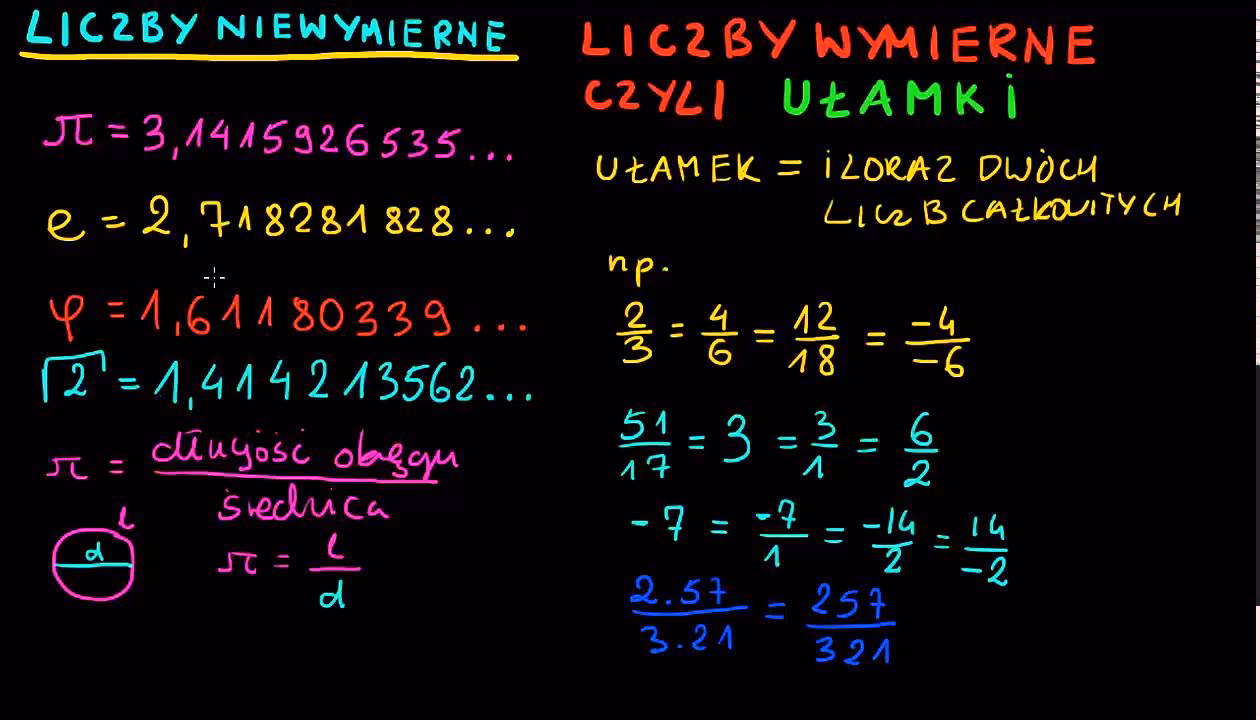 LICZBY NIEWYMIERNE
π = 3,1415926535...
e = 2,718281828...
φ = 1,61180339...
√2 = 1,414213562...
π = długość okręgu / średnica
l
d
π = l / d
LICZBY WYMIERNE
CZYLI UŁAMKI
UŁAMEK = ILORAZ DWÓCH
LICZB CAŁKOWITYCH
np.
2/3 = 4/6 = 12/18 = -4/-6
51/17 = 3 = 3/1 = 6/2
-7 = -7/1 = -14/2 = 14/-2
2.57/3.21 = 257/321